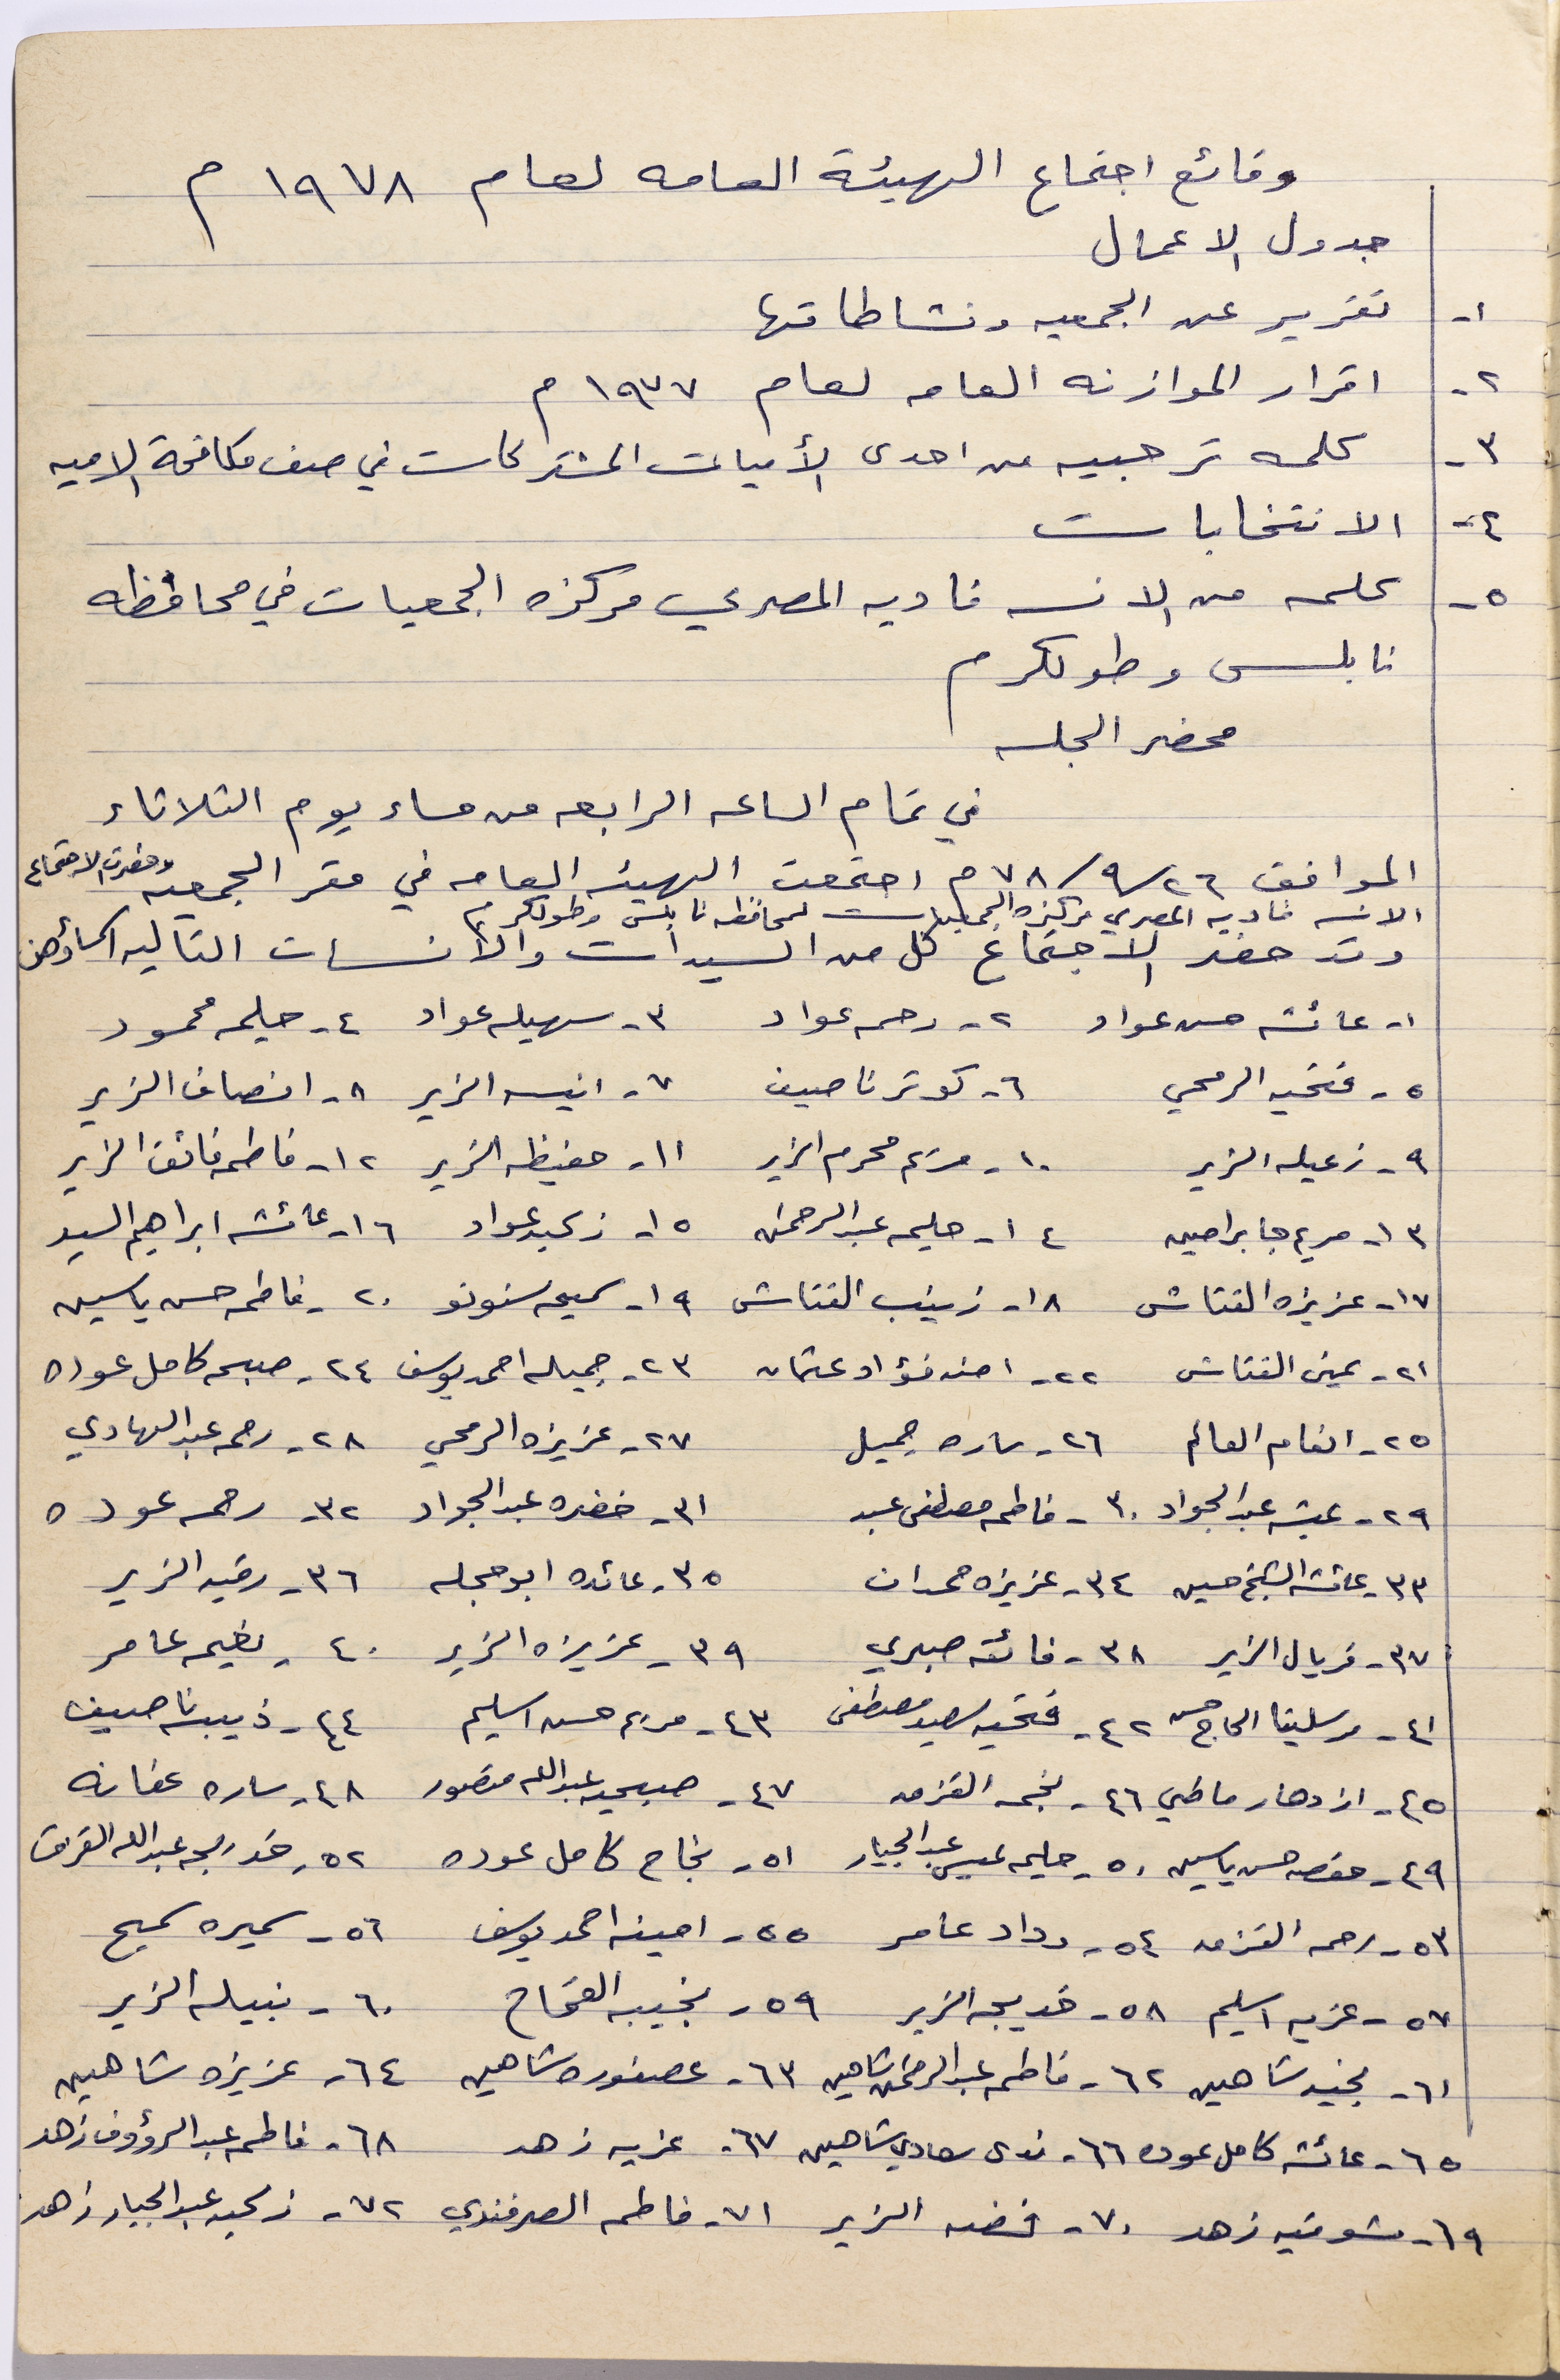 وقائع اجتماع الهيئة العامه لعام ١٩٧٨ م
جدول الاعمال
١- تقرير عن الجمعيه ونشاطاتها
٢- اقرار الموازنه العامه لعام ١٩٧٧ م
٣- كلمه ترحيبيه من احدى الأميات المشتركات في صف مكافحة الاميه
٤- الانتخابات
٥- كلمه من الانسه فاديه المصري مركزه الجمعيات في محافظه
نابلس وطولكرم
محضر الجلسه
في تمام الساعه الرابعه من مساء يوم الثلاثاء
الموافق ٢٦/٩/٧٨ م اجتمعت الهيئه العامه في مقر الجمعيه وحضرت الاجتماع
الانسه فاديه المصري مركزه الجمعيات لمحافظه نابلس وطولكرم
وقد حضر الاجتماع كل من السيدات والآنسات التاليه اسماؤهن
١- عائشه حسن عواد ٢- رحمه عواد ٣- سهيله عواد ٤- حليمه محمود
٥- فتحيه الرمحي ٦- كوثر ناصيف ٧- انيسه الزير ٨- انصاف الزير
٩- زعيله الزير ١٠- مريم محرم الزير ١١- حفيظه الزير ١٢- فاطمه فائق الزير
١٣- مريم جابر امين ١٤- حليمه عبد الرحمن ١٥- زكيه عواد ١٦- عائشه ابراهيم السيد
١٧- عزيزه النتاش ١٨- زينب النتاش ١٩- سميحه سنونو ٢٠- فاطمه حسن ياسين
٢١- يمنى النتاش ٢٢- امنه فؤاد عثمان ٢٣- جميله احمد يوسف ٢٤- صبحه كامل عوده
٢٥- انعام العالم ٢٦- ساره جميل ٢٧- عزيزه الرمحي ٢٨- رحمه عبد الهادي
٢٩- عيشه عبد الجواد ٣٠- فاطمه مصطفى عبد ٣١- خضره عبد الجواد ٣٢- رحمه عوده
٣٣- عائشه الشيخ حسين ٣٤- عزيزه حمدان ٣٥- عائده ابو حجله ٣٦- رقيه الزير
٣٧- فريال الزير ٣٨- فائقه صبري ٣٩- عزيزه الزير ٤٠- نعيمه عامر
٤١- مرسلينا الحاج حسن ٤٢- فتحيه سعيد مصطفى ٤٣- مريم حسن اسليم ٤٤- ذيبه ناصيف
٤٥- ازدهار ماضي ٤٦- نجمه القزمه ٤٧- صبحيه عبدالله منصور ٤٨- ساره عفانه
٤٩- حفصه حسن ياسين ٥٠- حليمه عيسى عبد الجبار ٥١- نجاح كامل عوده ٥٢- خديجه عبدالله القرق
٥٣- رحمه القزمه ٥٤- وداد عامر ٥٥- امينه احمد يوسف ٥٦- سميره سميح
٥٧- عزيه اسليم ٥٨- خديجه الزير ٥٩- نجيبه الفتاح ٦٠- نبيله الزير
٦١- نجيه شاهين ٦٢- فاطمه عبد الرحمن شاهين ٦٣- عصفوره شاهين ٦٤- عزيزه شاهين
٦٥- عائشه كامل عوده ٦٦- ندى سعادي شاهين ٦٧- عزيه زهد ٦٨- فاطمه عبد الرؤوف زهد
٦٩- شوقيه زهد ٧٠- فضه الزير ٧١- فاطمه الصرفندي ٧٢- زكيه عبد الجبار زهد